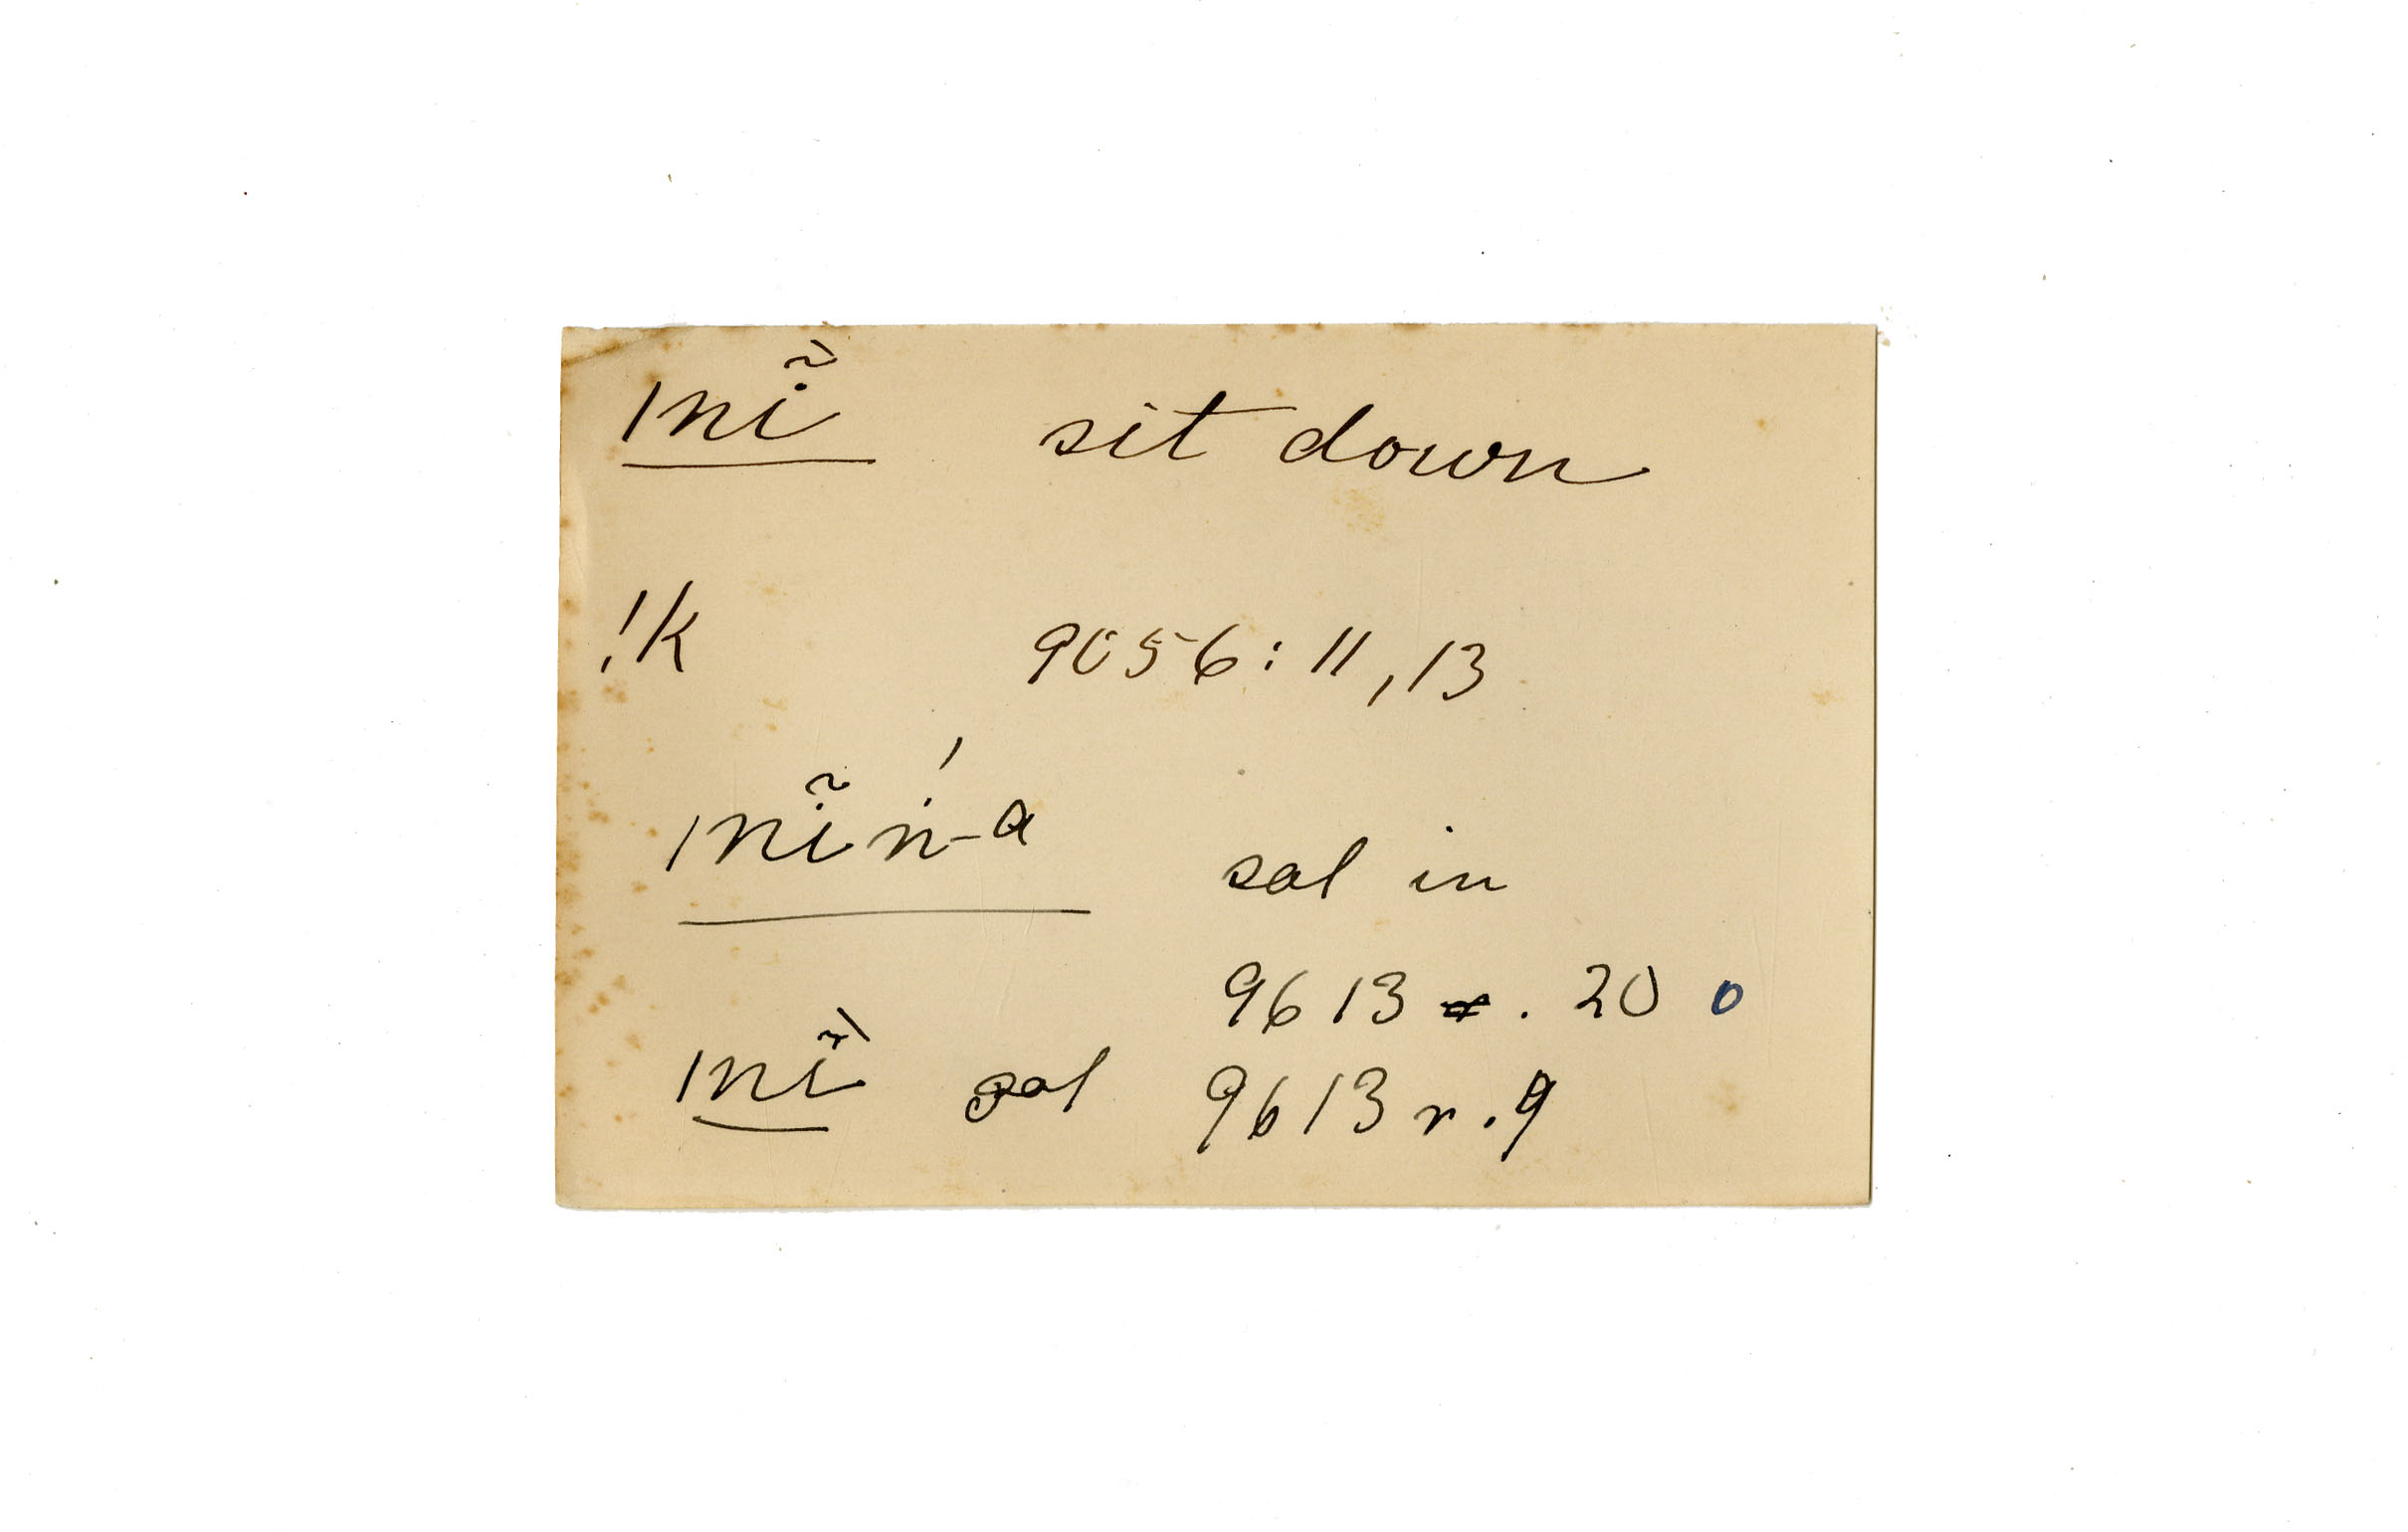 ǀnĩ́ sit down
!k 9056: 11, 13
ǀnĩ ń-a sat in
9613 r. 20 0
ǀnĩ́ sat 9613 r. 9